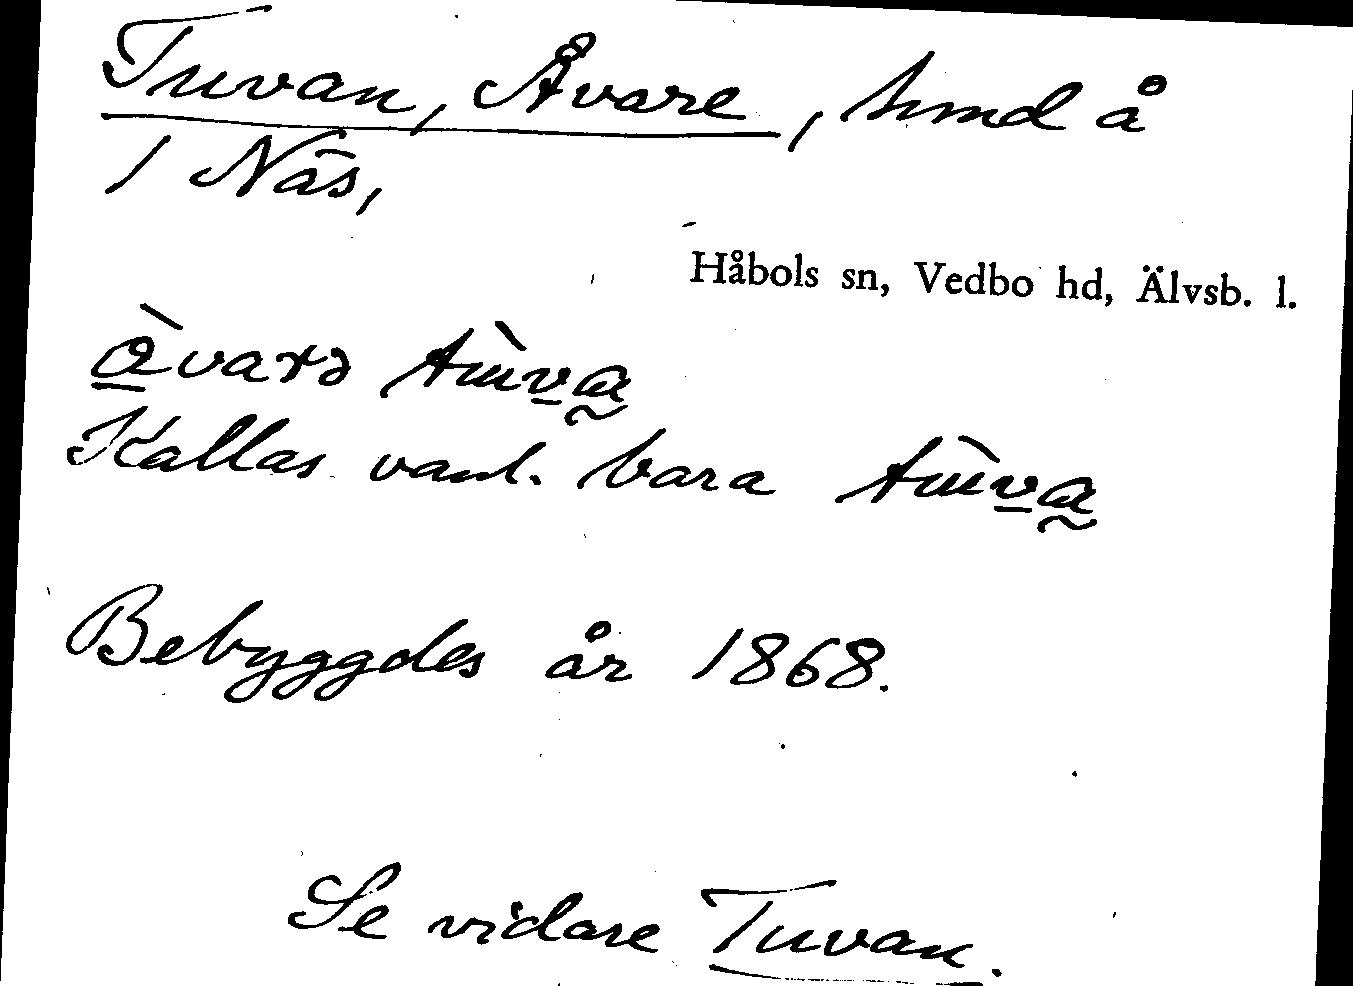 Tuvan, Åvare, hmd å
1 Näs,
Håbols sn, Vedbo hd, Älvsb. l.
Kallas vanl. bara
Bebyggdes år 1868.
Se vidare Tuvan.